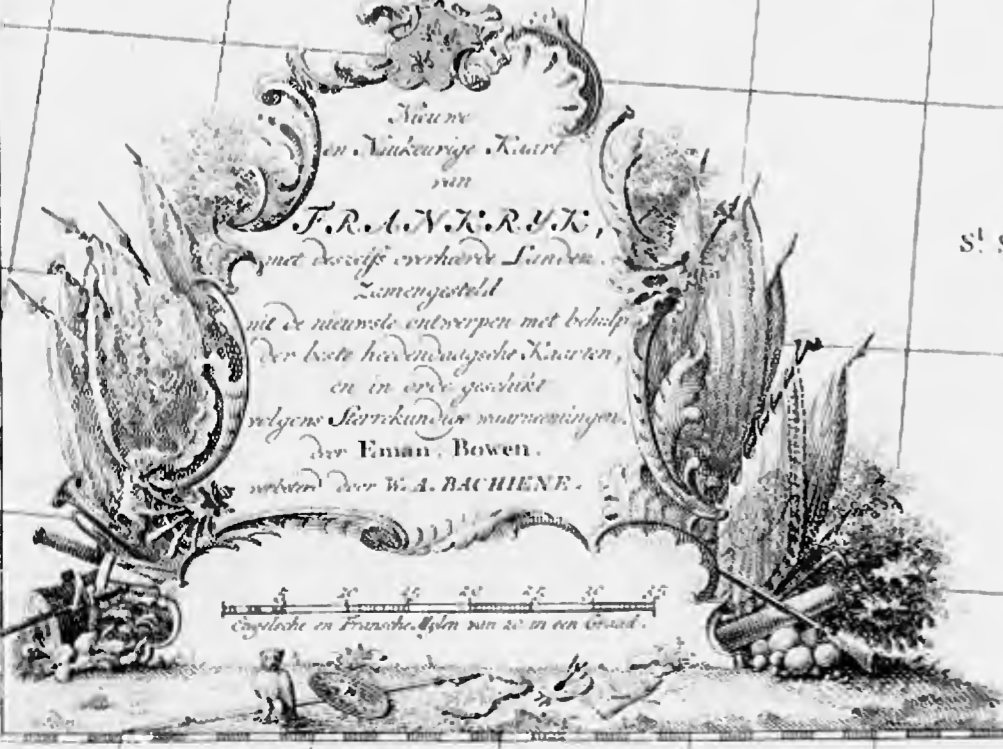 Nieuwe
en Naukeurige Kaart
van
FRANKRYK,
met deszelfs overheerde Landen.
Zamengesteld
uit de nieuwste ontwerpen met behulp
der beste hedendaagsche Kaarten,
en in orde geschikt
volgens Sterrekundige waarneemingen,
door Eman. Bowen.
verbeterd door W. A. BACHIENE.
St.
5 20 25 35
Engelsche en Fransche Mylen van 20 in een Graad.